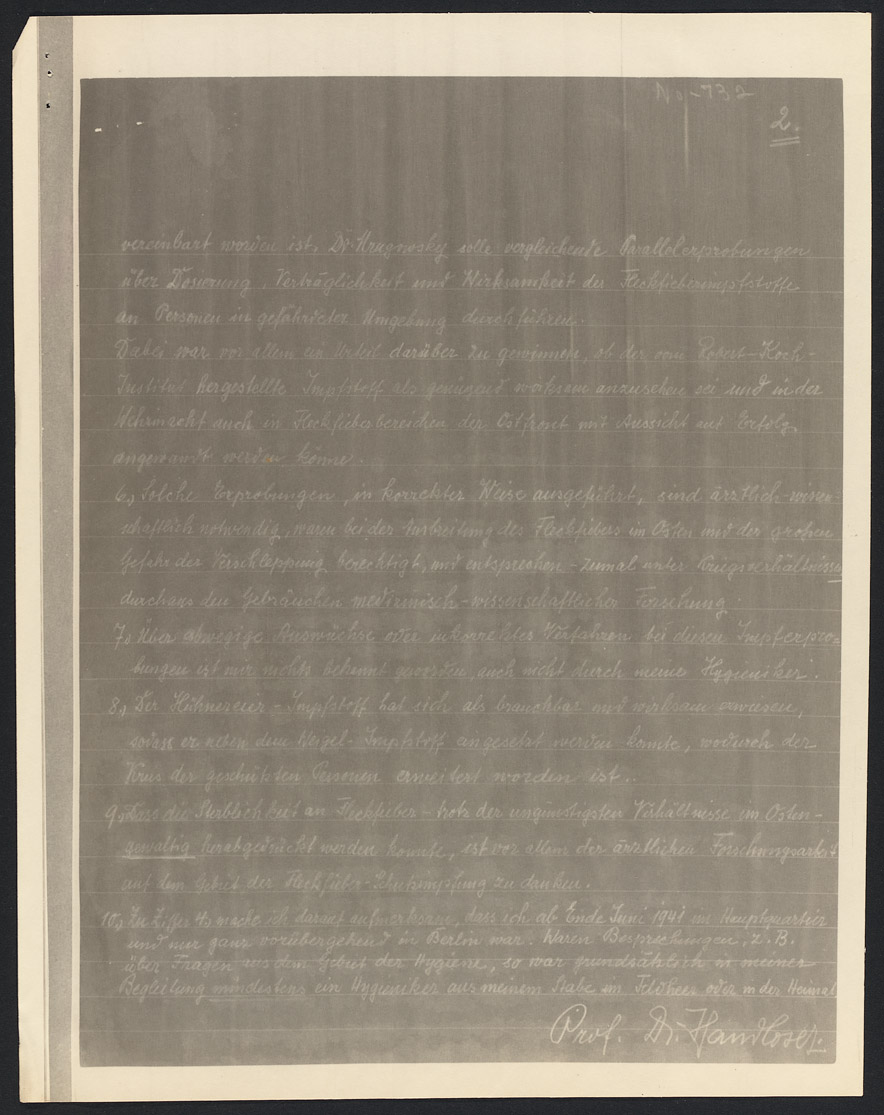 No-732
2.
vereinbart worden ist. Dr. Kragnosky solle vergleichende Parallelerprobungen
über Dosierung, Verträglichkeit und Wirksamkeit der Fleckfieberimpfstoffe
an Personen in gefährdeter Umgebung durchführen.
Dabei war vor allem ein Urteil darüber zu gewinnen, ob der vom Robert-Koch-
Institut hergestellte Impfstoff als genügend wirksam anzusehen sei und in der
Wehrmacht auch in Fleckfieberbereichen der Ostfront mit Aussicht auf Erfolg
angewandt werden könne.
6.) Solche Erprobungen, in korrekter Weise ausgeführt, sind ärztlich-wissen-
schaftlich notwendig, waren bei der Ausbreitung des Fleckfiebers im Osten und der großen
Gefahr der Verschleppung berechtigt, und entsprechen - zumal unter Kriegsverhältnissen
durchaus den Gebräuchen medizinisch-wissenschaftlicher Forschung.
7.) Über abwegige Auswüchse oder inkorrektes Verfahren bei diesen Impferpro-
bungen ist mir nichts bekannt geworden, auch nicht durch meine Hygieniker.
8.) Der Hühnereier-Impfstoff hat sich als brauchbar und wirksam erwiesen,
sodass er neben dem Weigel-Impfstoff eingesetzt werden konnte, wodurch der
Kreis der geschützten Personen erweitert worden ist.
9.) Dass die Sterblichkeit an Fleckfieber - trotz der ungünstigsten Verhältnisse im Osten -
gewaltig herabgedrückt werden konnte, ist vor allem der ärztlichen Forschungsarbeit
auf dem Gebiet der Fleckfieber-Schutzimpfung zu danken.
10.) Zu Ziffer 4.) mache ich darauf aufmerksam, dass ich ab Ende Juni 1941 im Hauptquartier
und nur ganz vorübergehend in Berlin war. Waren Besprechungen, z.B.
über Fragen aus dem Gebiet der Hygiene, so war grundsätzlich in meiner
Begleitung mindestens ein Hygieniker aus meinem Stabe im Feldheer oder in der Heimat
Prof. Dr. Handloser.